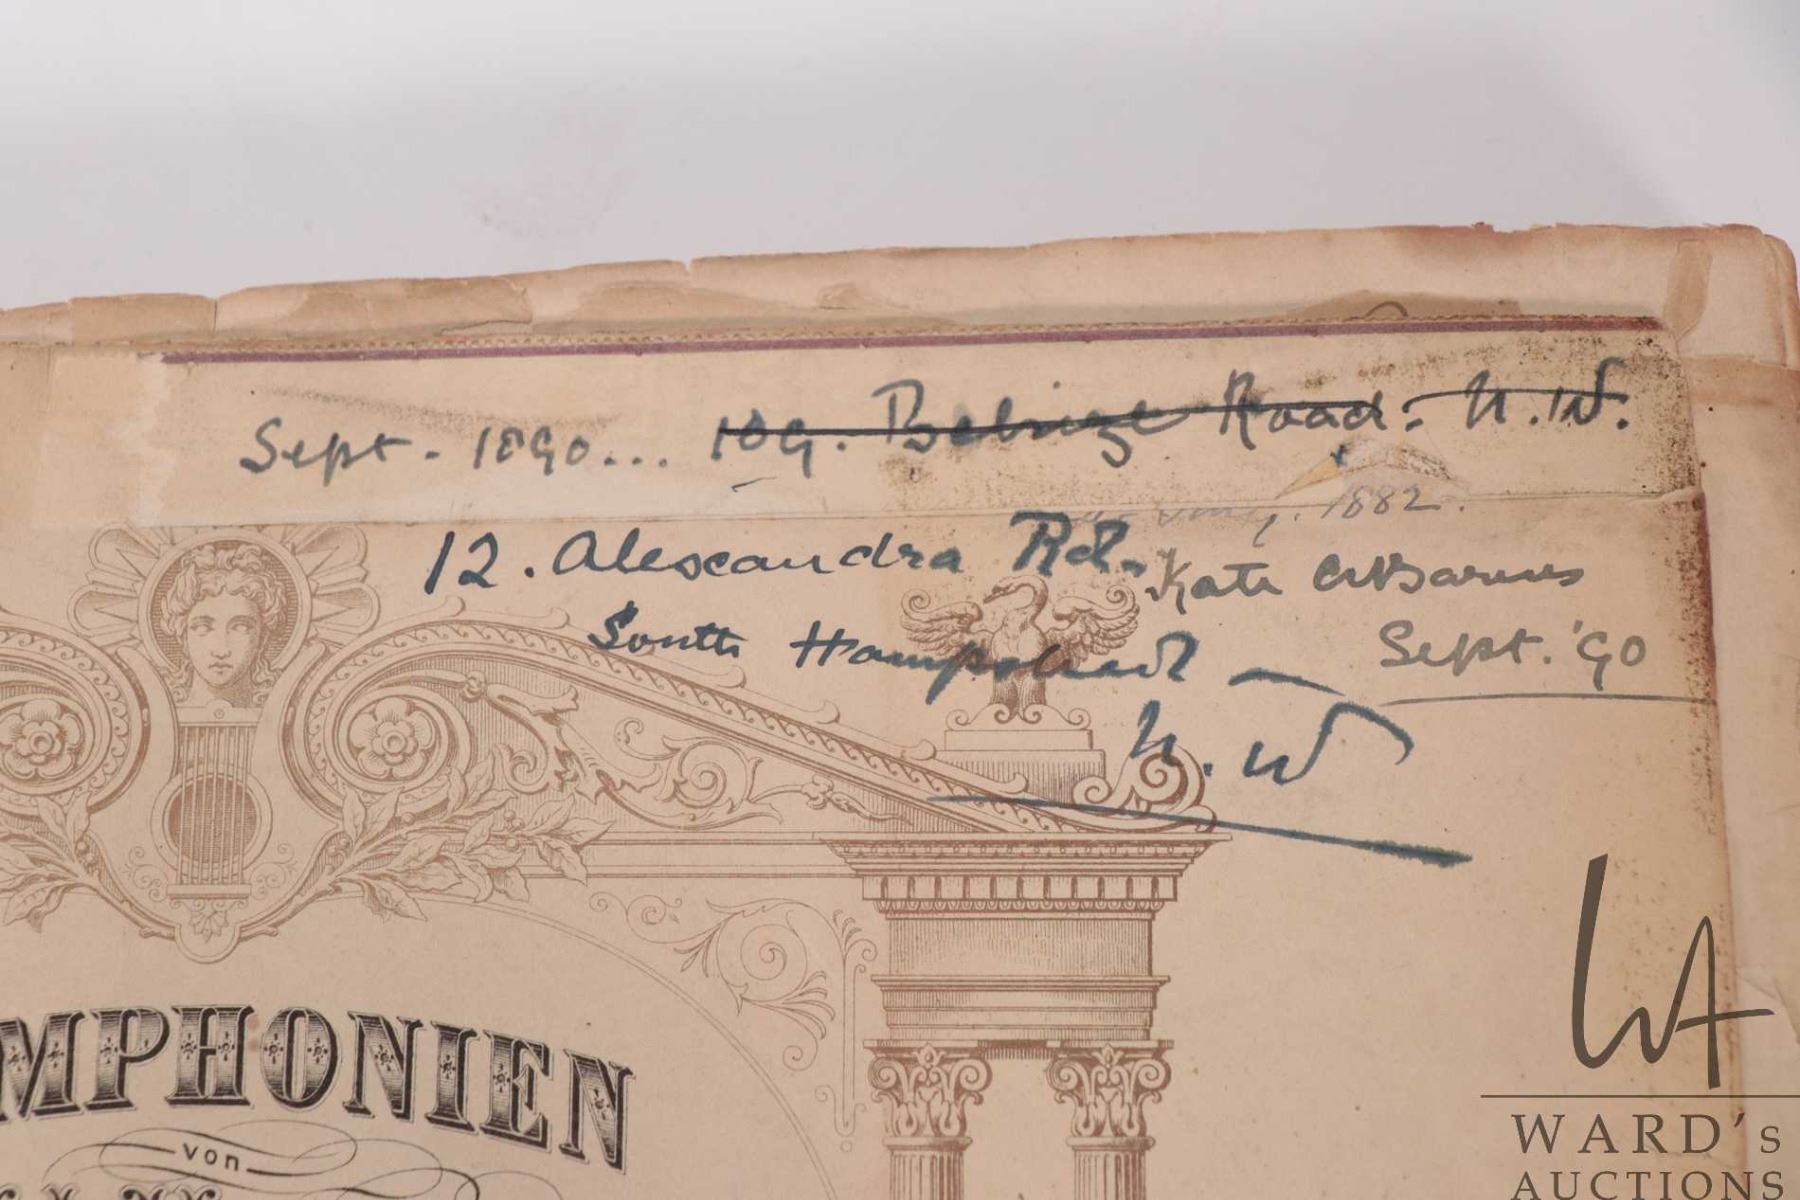 Sept. 1890... 109. Belsize Road. N.W.
1882.
12. Alexandra Rd. Kate Barnes
South Hampstead Sept. '90
N.W
MPHONIEN
von
WARD's
AUCTIONS